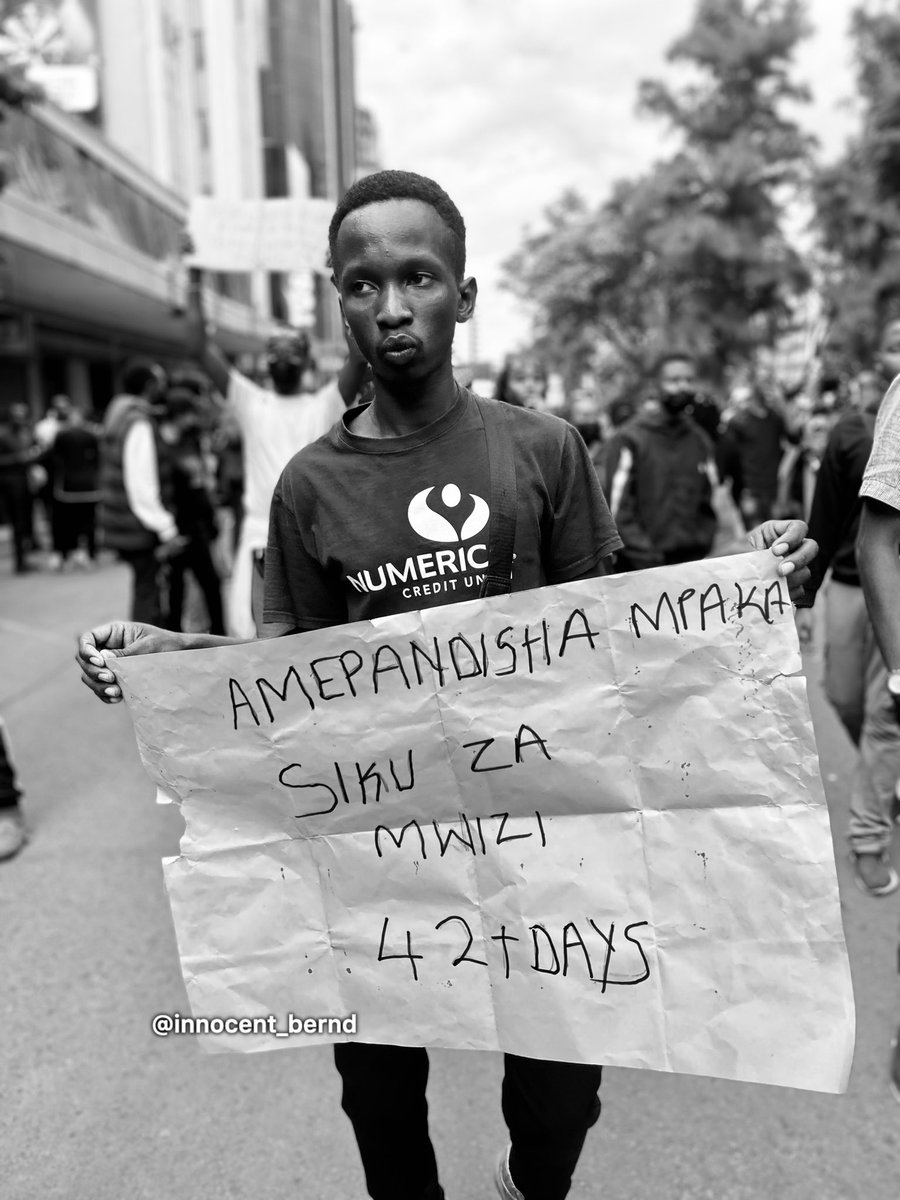 NUMERIC
CREDIT UN
AMEPANDISHA MPAKA
SIKU ZA
MWIZI
42+DAYS
@innocent_bernd